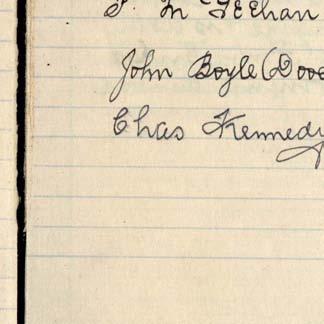 J. McGeehan
John Boyle (Dooe
Chas Kennedy